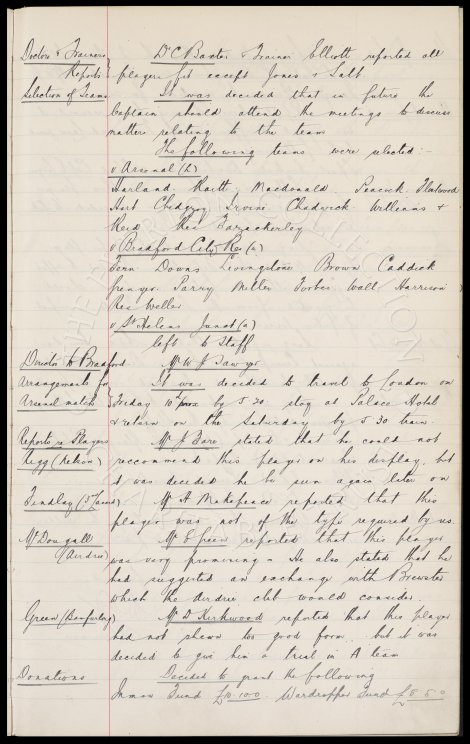 Doctors & Trainers Reports
Dr C Baxter & Trainer Elliott reported all
players fit except Jones & Salt
Selection of Teams
It was decided that in future the
Captain should attend the meetings to discuss
matters relating to the team
The following teams were selected:-
v Arsenal (L)
Harland Raitt Macdonald Peacock Fleetwood
Hart Chedgzoy Irvine Chadwick Williams &
Reid Res Fazackerley
v Bradford City Res (a)
Fern Downs Livingstone Brown Caddick
Parry Miller Forbes Wall Harrison
Res Weller
v St Helens Junct (a)
left to Staff
Director to Bradford
Mr W J Sawyer
Arrangements for Arsenal match
It was decided to travel to London on
Friday 10th by 5.20 stay at Palace Hotel
& return on the Saturday by 5.30 train
Reports re Players
Kegg (Nelson)
Mr J Bare stated that he could not
reccommend this player on his display, but
it was decided he be seen again later on
Findlay
Mr H Makepeace reported that this
player was not of the type required by us
McDougall (Airdrie)
Mr E Green reported that this player
was very promising - He also stated that he
had suggested an exchange with Brewster
which the Airdrie club would consider.
Green (Dunfurling)
Mr D Kirkwood reported that this player
had not shewn too good form, but it was
decided to give him a trial in A team
Donations
Decided to grant the following
Inman Fund £10.10.0. Wardropper Fund £5 5 0